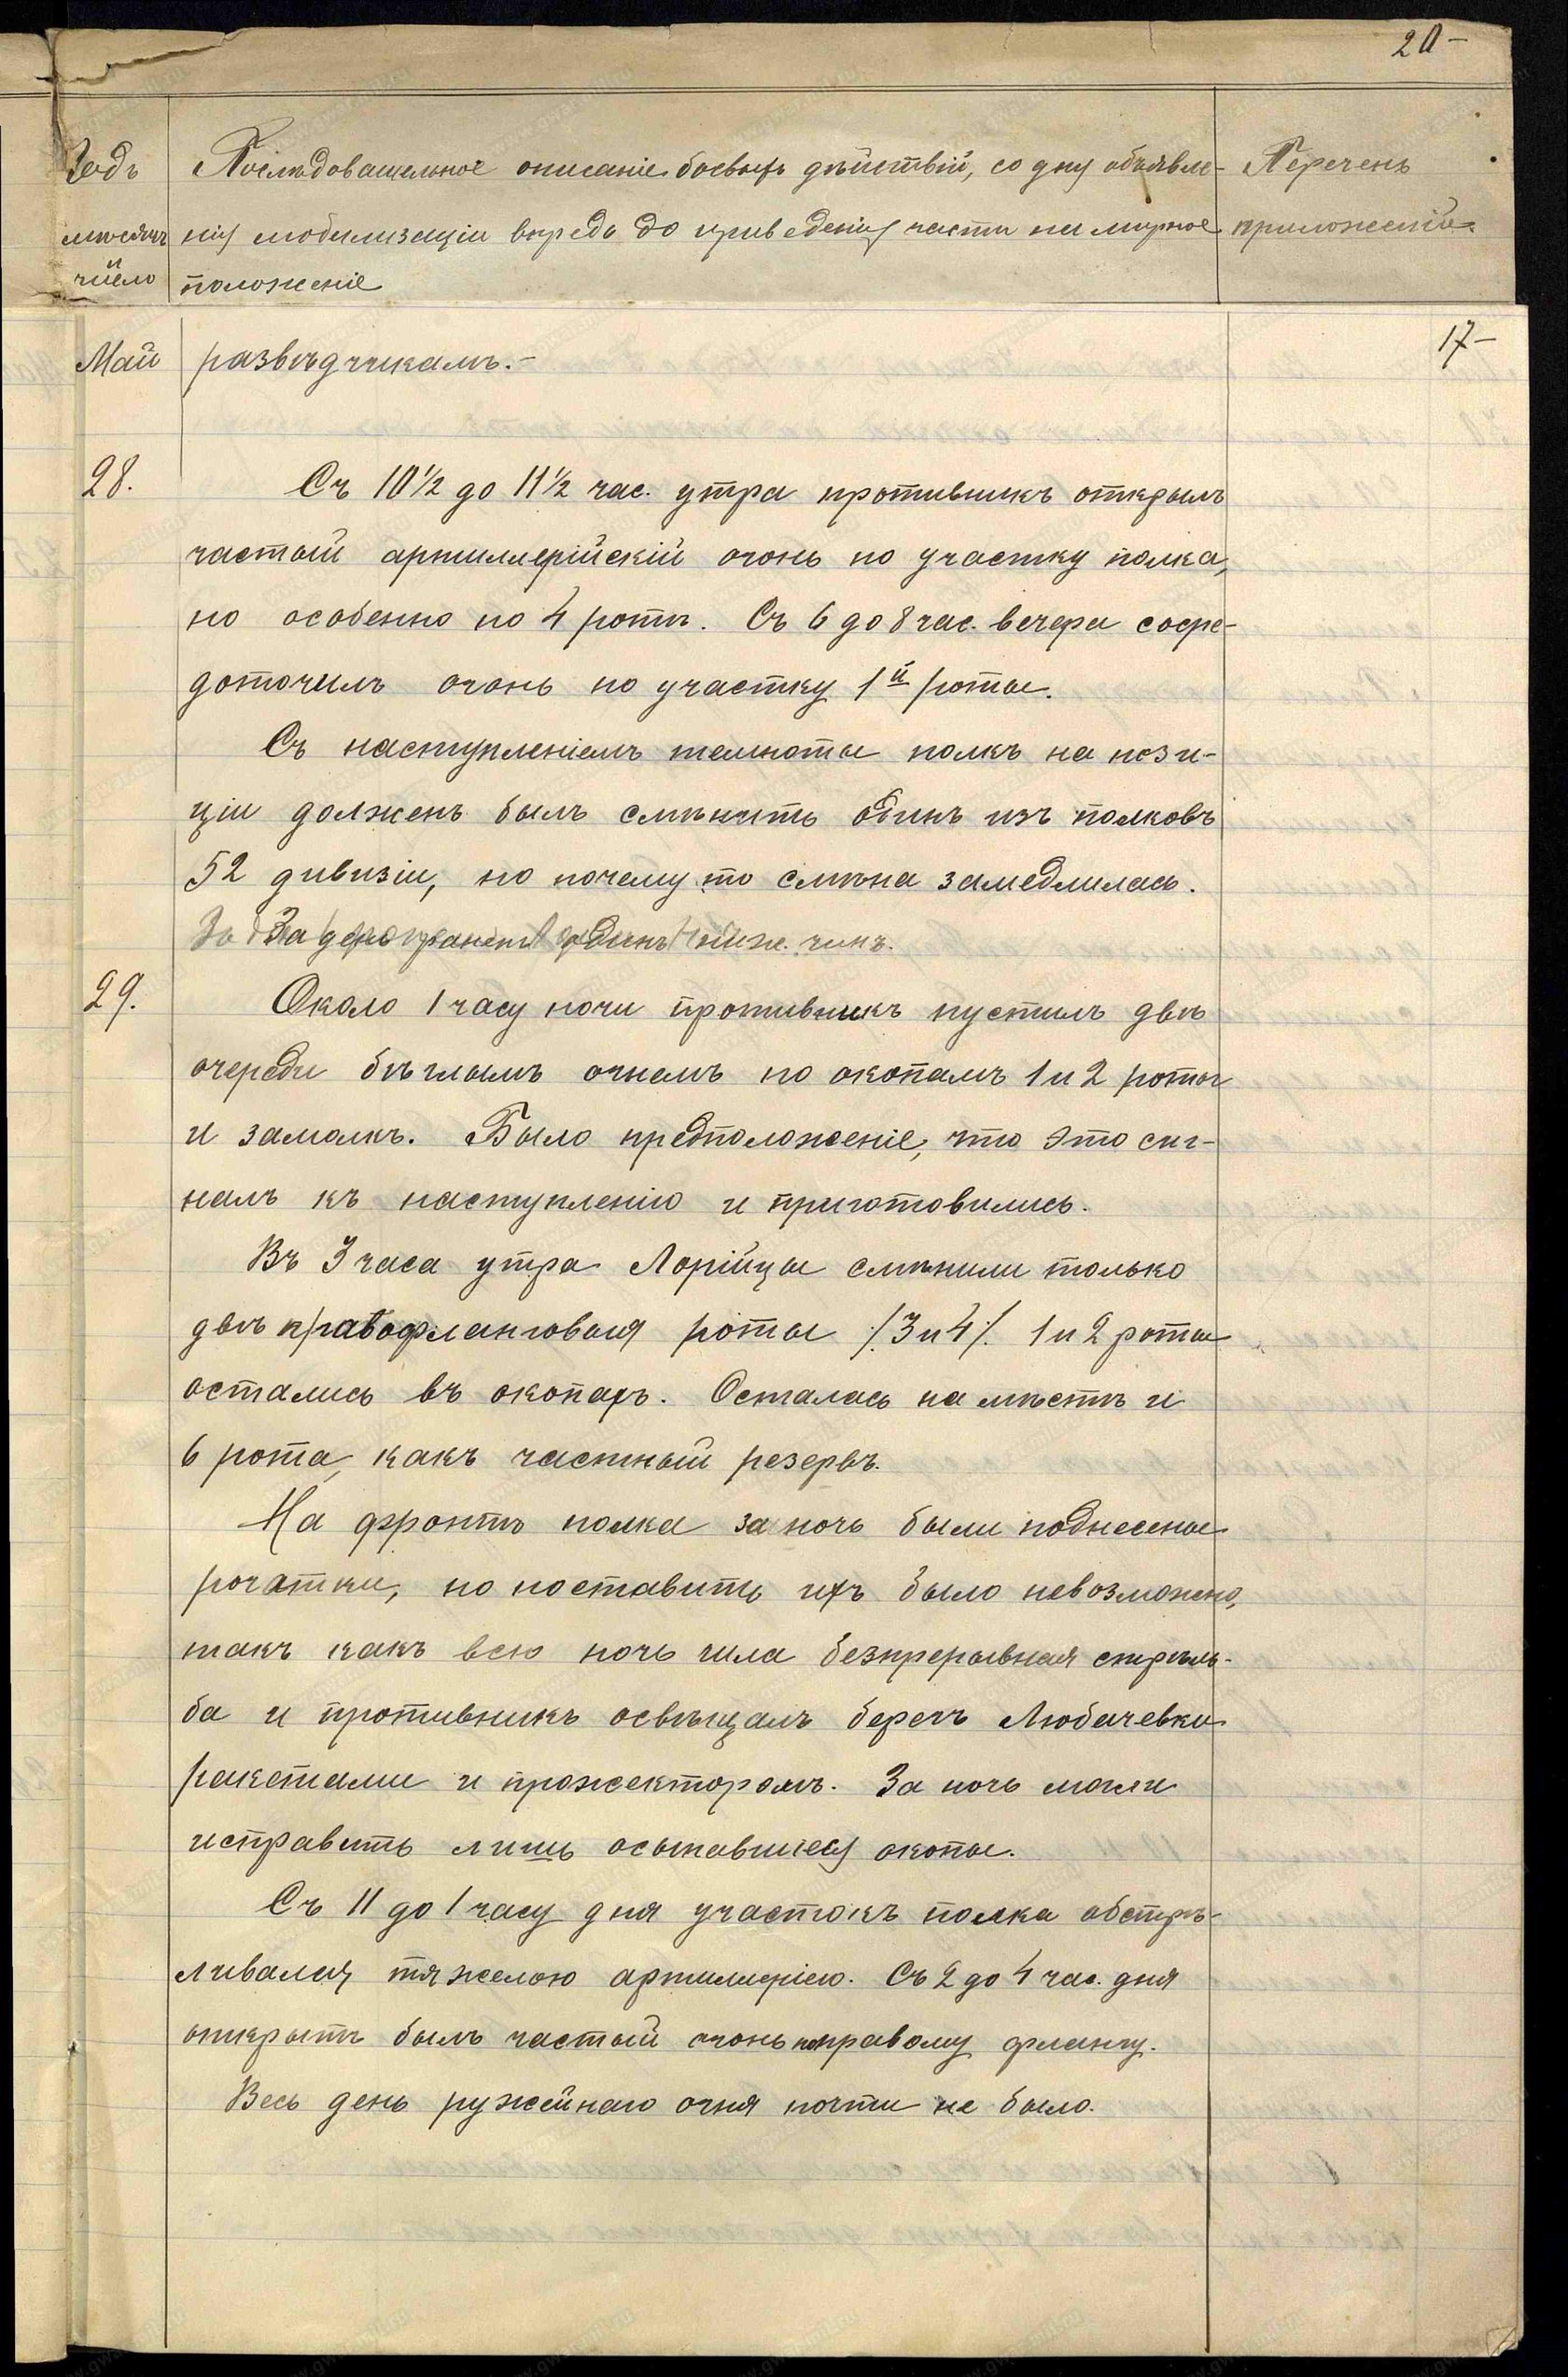 20-
Годъ
мѣсяцъ
и
число
Послѣдовательное описаніе боевыхъ дѣйствій, со дня объявле-
нія мобилизаціи впредь до приведенія части на мирное
положеніе
Перечень
приложеній
17-
Май
развѣдчикамъ.-
28.
Съ 10½ до 11½ час. утра противникъ открылъ
частый артиллерійскій огонь по участку полка,
но особенно по 4 ротѣ. Съ 6 до 8 час. вечера сосре-
доточилъ огонь по участку 1й роты.
Съ наступленіемъ темноты полкъ на пози-
ціи долженъ былъ смѣнить одинъ изъ полковъ
52 дивизіи, но почему то смѣна замедлилась.
За день раненъ одинъ ниж. чинъ.
29.
Около 1 часу ночи противникъ пустилъ двѣ
очереди бѣглымъ огнемъ по окопамъ 1 и 2 роты
и замолкъ. Было предположеніе, что это сиг-
налъ къ наступленію и приготовились.
Въ 3 часа утра Лорійцы смѣнили только
двѣ правофланговыя роты /.3 и 4/. 1 и 2 роты
остались въ окопахъ. Осталась на мѣстѣ и
6 рота, какъ частный резервъ.
На фронтъ полка за ночь были поднесены
рогатки, но поставить ихъ было невозможно,
такъ какъ всю ночь шла безпрерывная стрѣль-
ба и противникъ освѣщалъ берегъ Любачевки
ракетами и прожекторомъ. За ночь могли
исправить лишь осыпавшіеся окопы.
Съ 11 до 1 часу дня участокъ полка обстрѣ-
ливался тяжелою артилеріею. Съ 2 до 4 час. дня
открытъ былъ частый огонь по правому флангу.
Весь день ружейнаго огня почти не было.